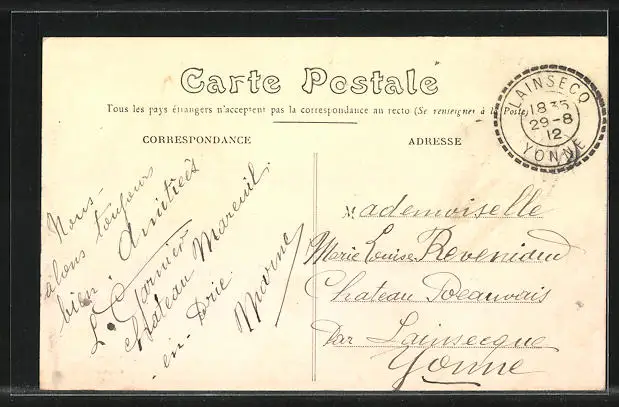 Carte Postale
Tous les pays étrangers n'acceptent pas la correspondance au recto (Se renseigner à la Poste)
CORRESPONDANCE
ADRESSE
LAINSECQ
18 35
29-8
12
YONNE
Nous-
alons toujours
bien. Amitiées
L. Garnier
chateau Mareuil
-en-Brie
Marne
Mademoiselle
Marie Louise
Chateau Beauvais
Par Lainsecque
Yonne